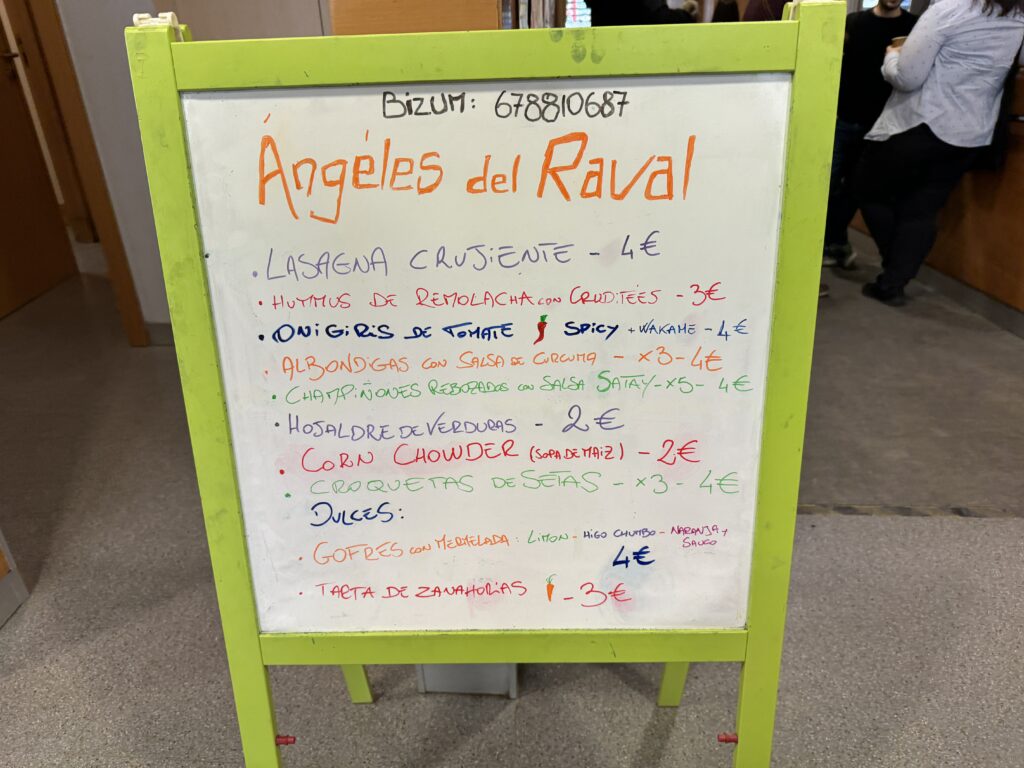 BIZUM: 678810687
Ángéles del Raval
• LASAGNA CRUJIENTE - 4€
• HUMMUS DE REMOLACHA CON CRUDITÉES - 3€
• ONIGIRIS DE TOMATE SPICY + WAKAME - 4€
• ALBONDIGAS CON SALSA DE CURCUMA - x3 - 4€
• CHAMPIÑONES REBOZADOS CON SALSA SATAY - x5 - 4€
• HOJALDRE DE VERDURAS - 2€
• CORN CHOWDER (SOPA DE MAIZ) - 2€
• CROQUETAS DE SETAS - x3 - 4€
DULCES:
• GOFRES CON MERMELADA: LIMON - HIGO CHUMBO - NARANJA Y
SAUCO
4€
• TARTA DE ZANAHORIAS - 3€